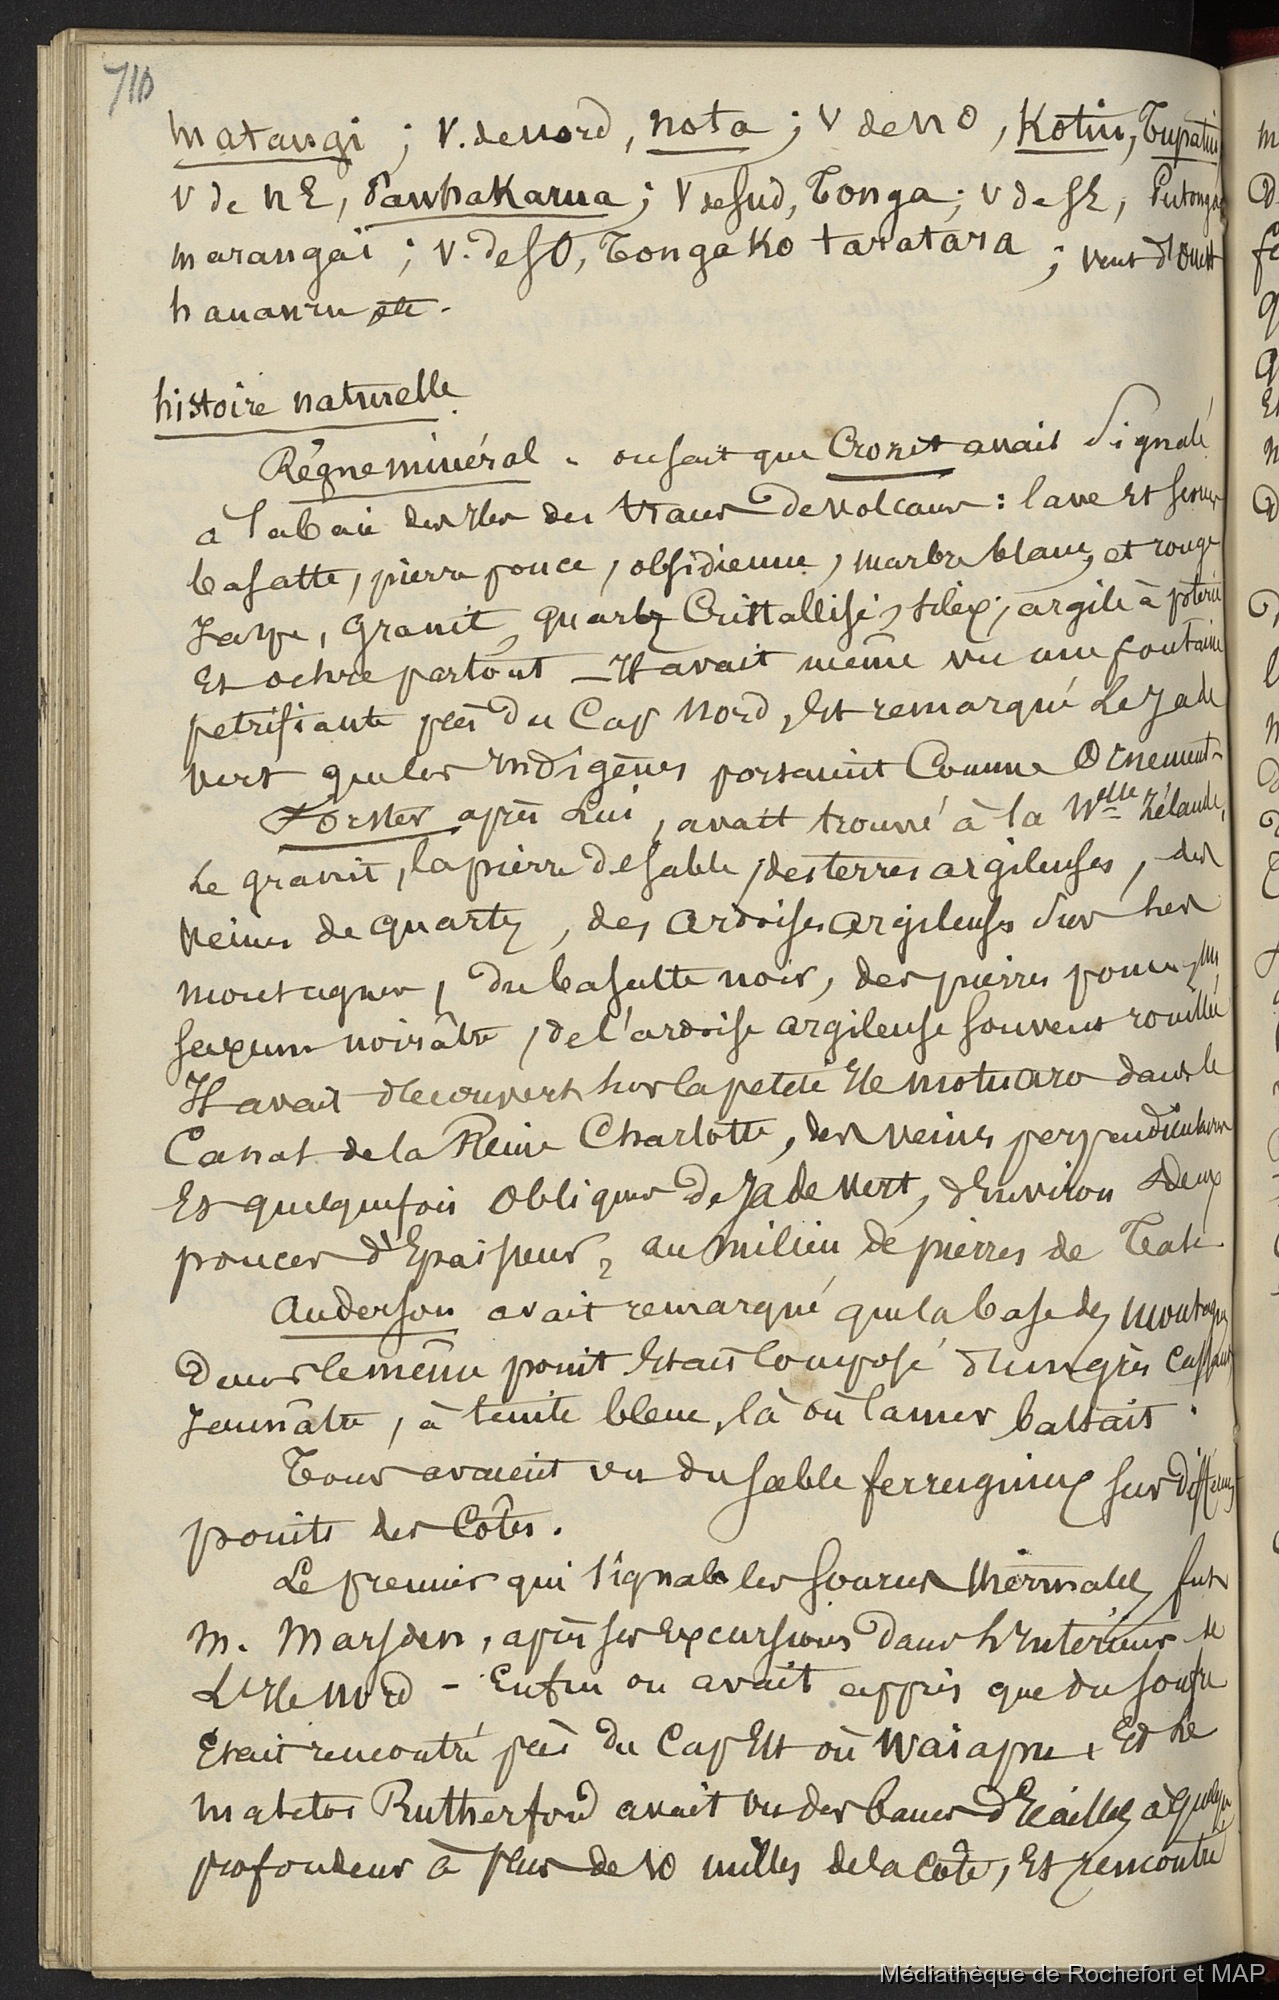 710
matangi ; V. de nord, nota ; V de N O, Kotiu, Tupatiu
V de N E, Pawhakarua ; V de Sud, Tonga ; V de S E, Putongai
marangai ; V. de S O, Tongako taratara ; vent d'Ouest
hauauru etc.
histoire naturelle
Règne minéral. on sait que Crozet avait signalé
à la baie des Iles des traces de volcans : lave et scories
basalte, pierre ponce, obsidienne, marbre blanc et rouge
Jaspe, Granit, quartz Cristallisé, silex, argile à poterie
Et ochre partout – Il avait même vu une fontaine
petrifiante près du Cap Nord, Et remarqué Le Jade
vert que les Indigènes portaient Comme Ornement.
Forster après Lui, avait trouvé à la Nelle Zélande,
Le granit, la pierre de sable, des terres argileuses, des
veines de quartz, des ardoises argileuses sur les
montagnes, du basalte noir, des pierres ponces, un
saxum noirâtre, de l'ardoise argileuse souvent rouillée
Il avait découvert sur la petite Ile motuaro dans le
Canal de la Reine Charlotte, des veines perpendiculaires
Et quelquefois obliques de Jade vert, d'Environ deux
pouces d'Epaisseur, au milieu de pierres de Talc
Anderson avait remarqué que la base des montagnes
Dans le même point Etait Composé d'un grès cassant
Jaunâtre, à teinte bleue, là où la mer battait.
Tous avaient vu du sable ferrugineux sur différents
points des Côtes.
Le premier qui signala les sources thermales fut
M. Marsden, après ses Excursions dans L'Intérieur de
L'Ile Nord – Enfin on avait appris que du soufre
Etait rencontré près du Cap Est ou Waiapu, Et Le
matelot Rutherford avait vu des bancs d'Ecailles à quelque
profondeur à plus de 10 milles de la Côte, Et rencontré
Médiathèque de Rochefort et MAP